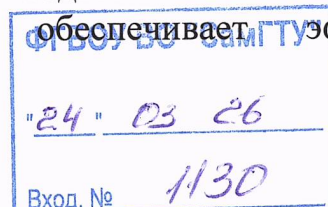 обеспечивает эс
ФГБОУ ВО "СамГТУ"
"24" 03 26
Вход. № 1130